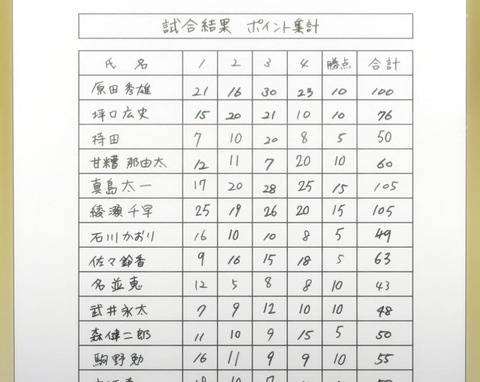 試合結果 ポイント集計
氏名 1 2 3 4 勝点 合計
原田秀雄 21 16 30 23 10 100
坪口広史 15 20 21 10 10 76
持田 7 10 20 8 5 50
甘糟那由太 12 11 7 20 10 60
真島太一 17 20 28 25 15 105
綾瀬千早 25 19 26 20 15 105
石川かおり 16 10 10 8 5 49
佐々鈴香 9 16 15 18 5 63
名並恵 12 5 8 8 10 43
武井永太 7 9 12 10 10 48
森健二郎 11 10 9 15 5 50
駒野勉 16 11 9 9 10 55